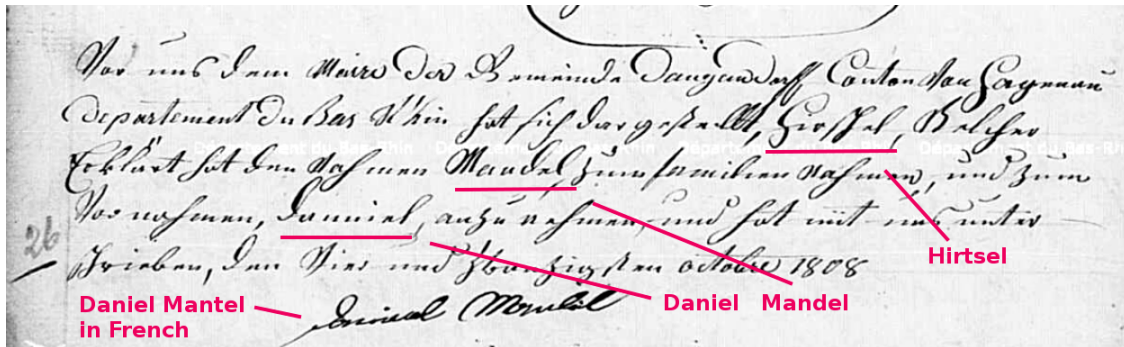 Vor uns dem Maire der Gemeinde Dangendorff, Canton Von Hagenau
Departement du Bas Rhin hat sich dargestellt, Hirschel, Welcher
Erklärt hat den Nahmen Mandel, zum familien Nahmen, und zum
Vornahmen, Danniel, anzunehmen, und hat mit uns unter
schrieben, den Vier und Zwanzigsten octobre 1808
26
Hirtsel
Daniel Mandel
Daniel Mantel
in French